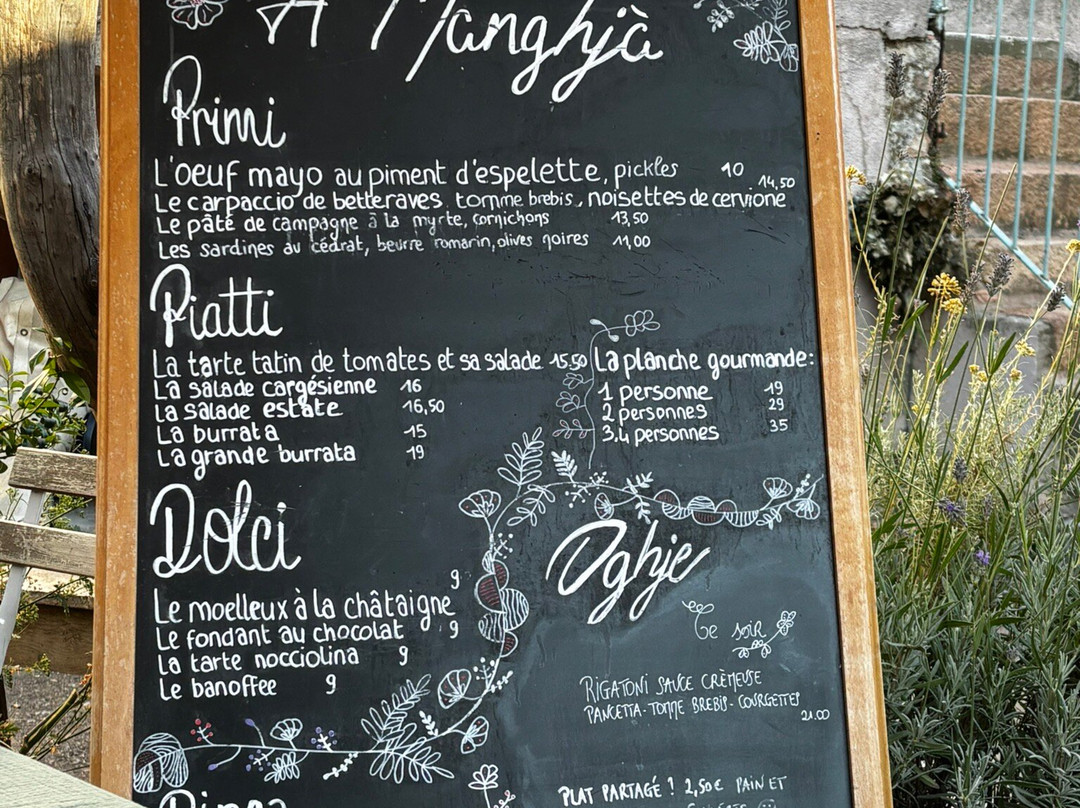 A Manghjà
Primi
L'oeuf mayo au piment d'espelette, pickles 10
Le carpaccio de betteraves, tomme brebis, noisettes de cervione 14,50
Le pâté de campagne à la myrte, cornichons 13,50
Les sardines au cédrat, beurre romarin, olives noires 11,00
Piatti
La tarte tatin de tomates et sa salade 15,50
La salade cargésienne 16
La salade estate 16,50
La burrata 15
La grande burrata 19
La planche gourmande:
1 personne 19
2 personnes 29
3,4 personnes 35
Dolci
Le moelleux à la châtaigne 9
Le fondant au chocolat 9
La tarte nocciolina 9
Le banoffee 9
Oghje
Ce soir
RIGATONI SAUCE CRÈMEUSE
PANCETTA - TOMME BREBIS - COURGETTES
21.00
PLAT PARTAGÉ ! 2,50€ PAIN ET